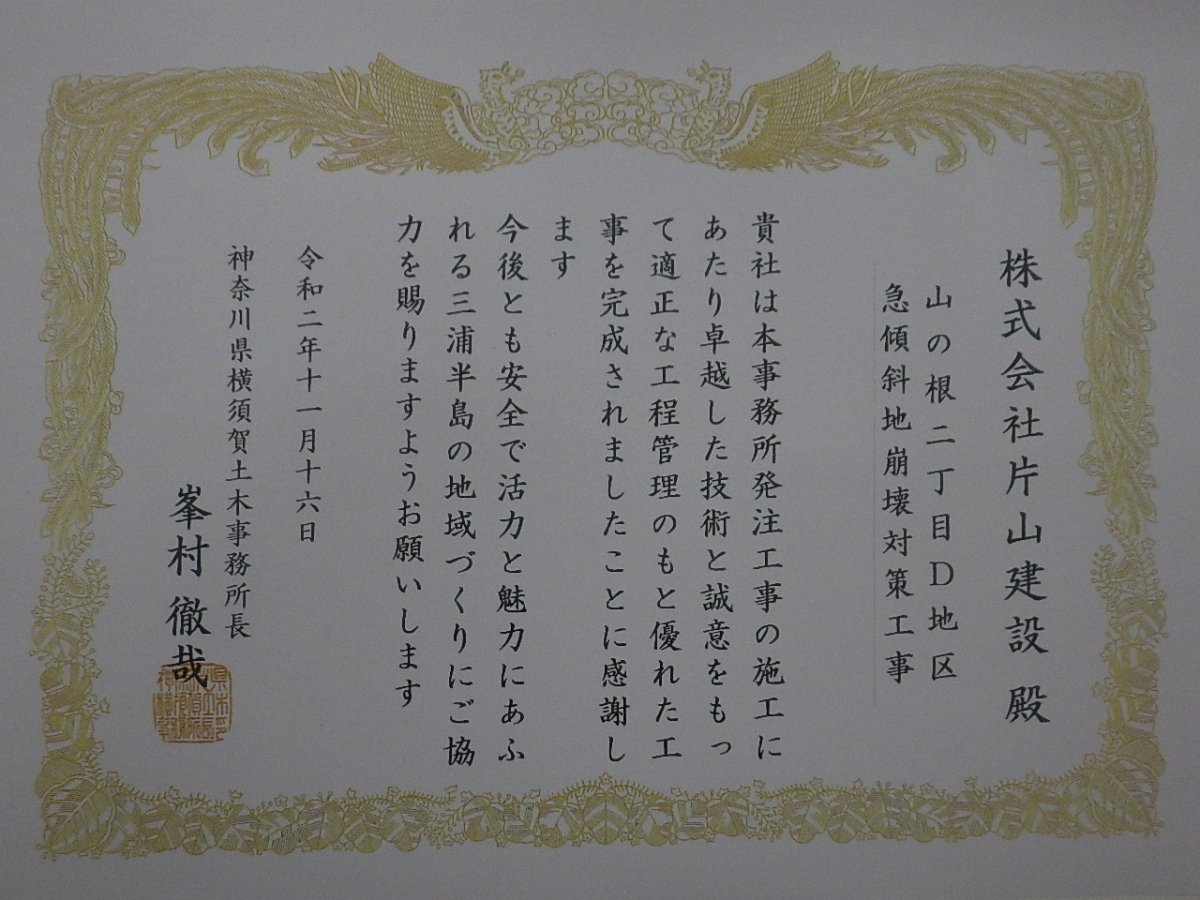 株式会社片山建設 殿
山の根二丁目D地区
急傾斜地崩壊対策工事
貴社は本事務所発注工事の施工に
あたり卓越した技術と誠意をもっ
て適正な工程管理のもと優れた工
事を完成されましたことに感謝し
ます
今後とも安全で活力と魅力にあふ
れる三浦半島の地域づくりにご協
力を賜りますようお願いします
令和二年十一月十六日
神奈川県横須賀土木事務所長
峯村 徹哉